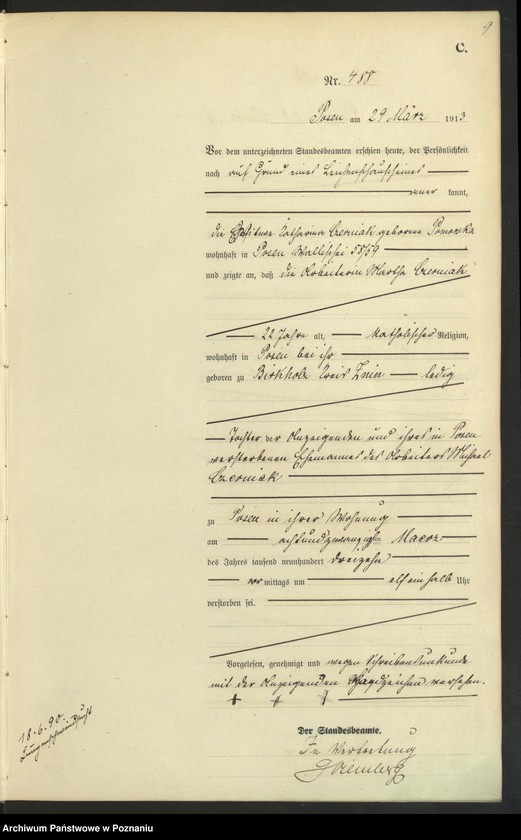 9
C.
Nr. 488
Posen am 29 März 1913
Vor dem unterzeichneten Standesbeamten erschien heute, der Persönlichkeit
nach auf Grund eines Leichenschauscheines
aner kannt,
die Witwe Katharina Czerniak geborene Pomorska
wohnhaft in Posen Wallischei 58/59
und zeigte an, daß die Arbeiterin Martha Czerniak
22 Jahre alt, katholischer Religion,
wohnhaft in Posen bei ihr
geboren zu Birkholz Kreis Znin ledig
Tochter der Anzeigenden und ihres in Posen
verstorbenen Ehemannes des Arbeiters Michael
Czerniak
zu Posen in ihrer Wohnung
am achtundzwanzigsten Maerz
des Jahres tausend neunhundert dreizehn
vor mittags um elf ein halb Uhr
verstorben sei.
Vorgelesen, genehmigt und wegen Schreibensunkunde
mit der Anzeigenden Handzeichen versehen.
+ + +
Der Standesbeamte.
In Vertretung
18.6.90.
Lungenschwindsucht
Archiwum Państwowe w Poznaniu